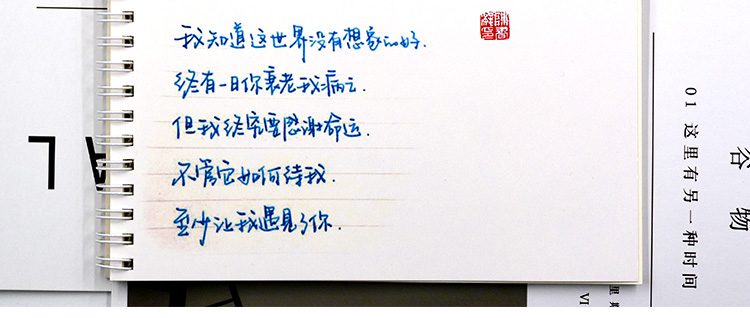 我知道这世界没有想象的好.
终有一日你衰老我病亡.
但我终究要感谢命运.
不管它如何待我.
至少让我遇见了你.
01 这里有另一种时间
谷物
VI